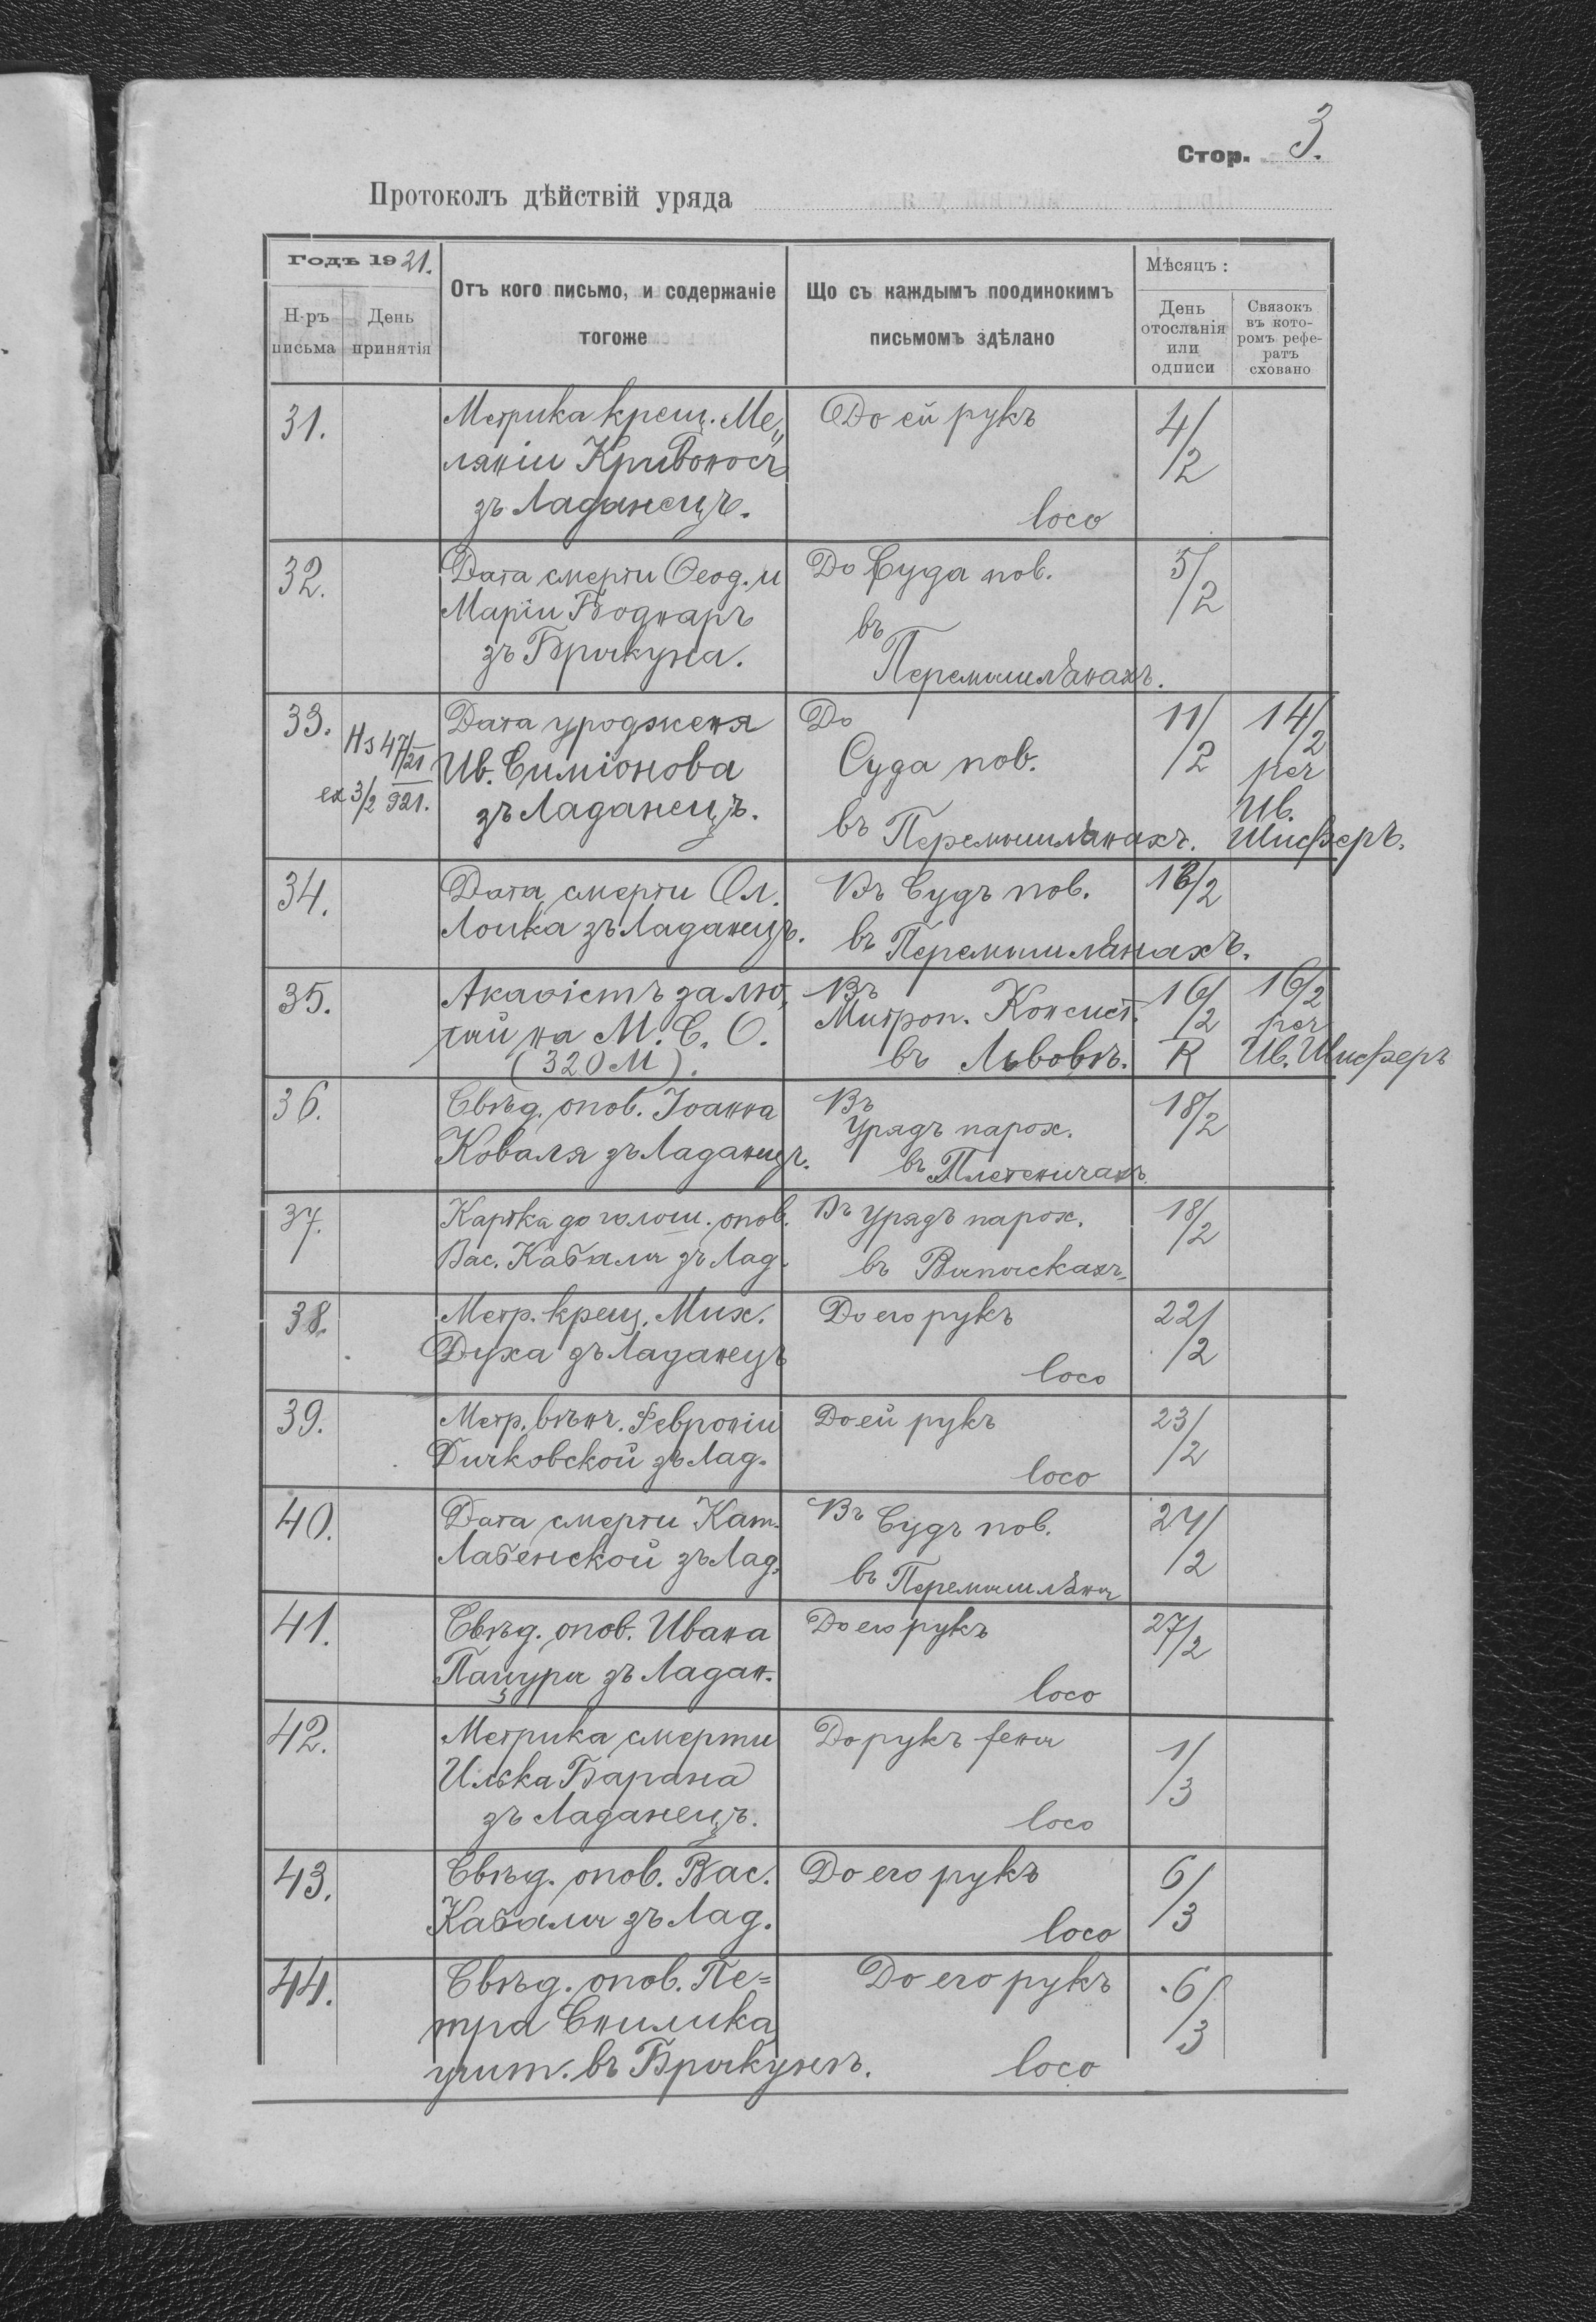 Стор. 3.
Протоколъ дѣйствій уряда
Годъ 1921.
Н-ръ письма
День принятія
Отъ кого письмо, и содержаніе
тогоже
Що съ каждымъ поодинокимъ
письмомъ здѣлано
Мѣсяцъ:
День
отосланія
или
одписи
Связокъ
въ кото-
ромъ рефе-
ратъ
сховано
31.
Метрика крещ. Ме„
ланіи Кривоносъ
зъ Ладанецъ.
До ей рукъ
loco
4/2
32.
Дата смерти Ѳеод. и
Маріи Боднаръ
зъ Брыкуна.
До Суда пов.
въ
Перемышлѣнахъ.
5/2
33.
Нз 47/21
ex 3/2 921.
Дата уродженя
Ив. Симіонова
зъ Ладанецъ.
До
Суда пов.
въ Перемышлѣнахъ.
11/2
14/2
реч
Ив.
Шнсферъ.
34.
Дата смерти Ол.
Лоика зъ Ладанецъ.
Въ Судъ пов.
въ Перемышлѣнахъ.
/2
35.
Акаѳістъ за лю„
тый на М. С. О.
(320 М).
Въ
Митроп. Консист.
въ Львовѣ.
16/2
R
16/2
реч
Ив. Шнсферъ
36.
Свѣд. опов. Іоанна
Коваля зъ Ладанецъ.
Въ
Урядъ парох.
въ Плетеничахъ
18/2
37.
Картка до голош. опов.
Вас. Кабалы зъ Лад.
Въ Урядъ парох.
въ Выпыскахъ
18/2
38.
Метр. крещ. Мих.
Духа зъ Ладанецъ
До его рукъ
loco
22/2
39.
Метр. вѣнч. Февроніи
Дычковской зъ Лад.
До ей рукъ
loco
23/2
40.
Дата смерти Кат.
Лабенской зъ Лад.
Въ Судъ пов.
въ Перемышлѣны
24/2
41.
Свѣд. опов. Ивана
Пацуры зъ Ладан.
До его рукъ
loco
27/2
42.
Метрика смерти
Илька Барана
зъ Ладанецъ.
До рукъ жены
loco
1/3
43.
Свѣд. опов. Вас.
Кабалы зъ Лад.
До его рукъ
loco
6/3
44.
Свѣд. опов. Пе=
тра Снилика
учит. въ Брыкунѣ.
До его рукъ
loco
6/3